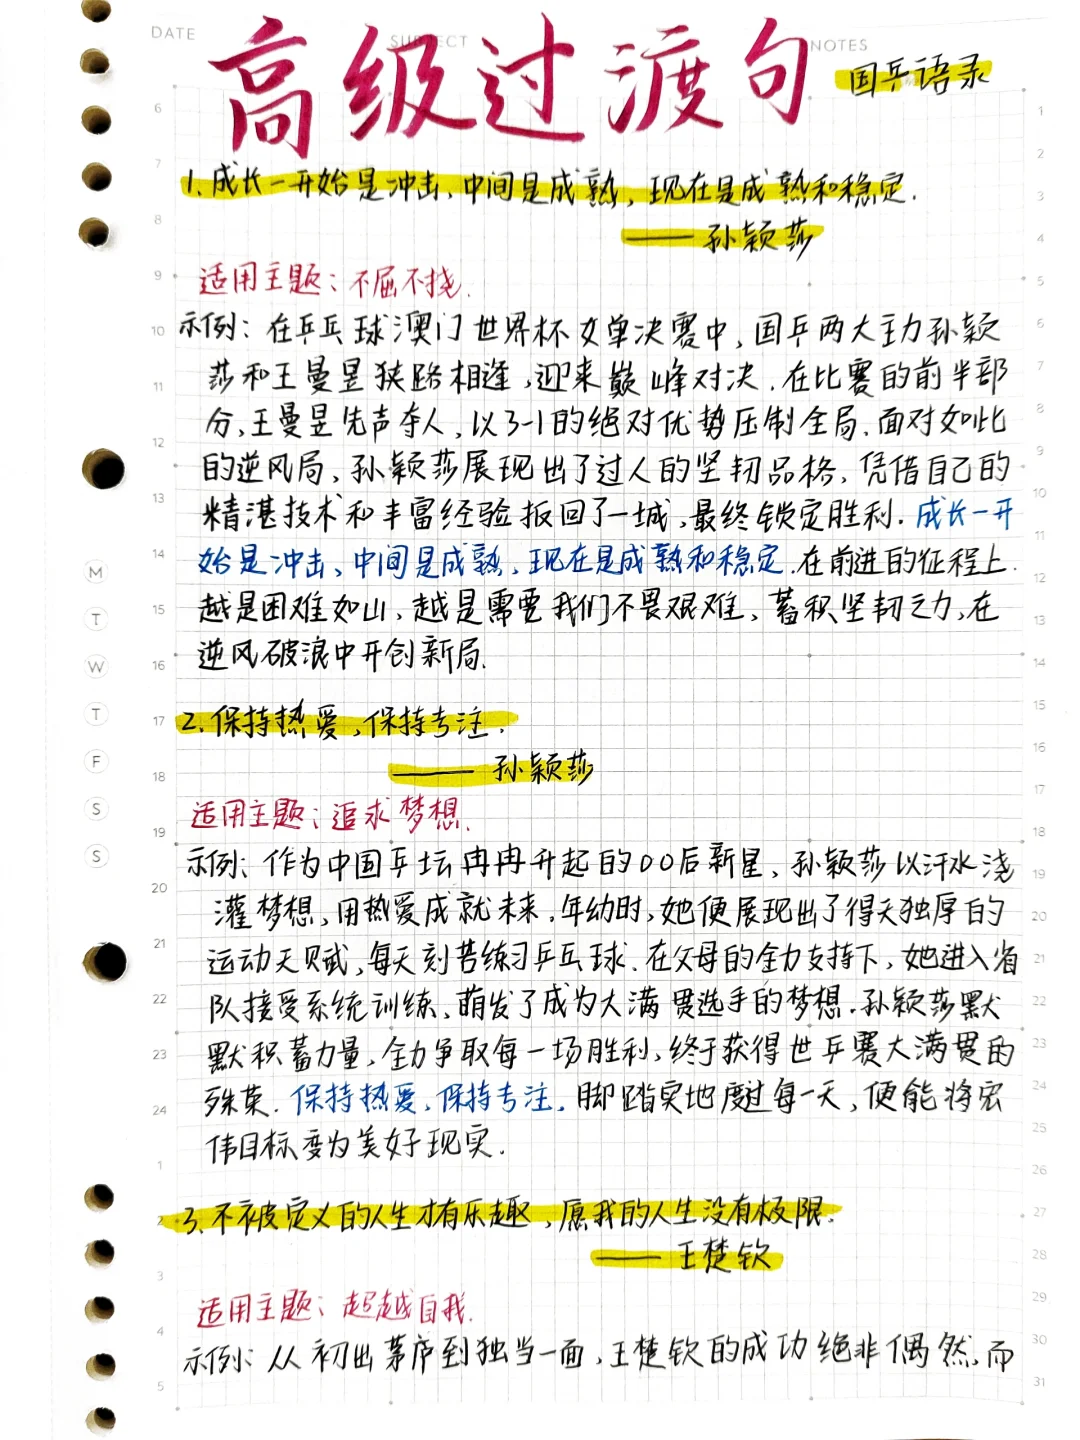 DATE
SUBJECT
NOTES
高级过渡句
国乒语录
1.成长一开始是冲击、中间是成熟,现在是成熟和稳定.
——孙颖莎
适用主题:不屈不挠.
示例:在乒乓球澳门世界杯女单决赛中,国乒两大主力孙颖
莎和王曼昱狭路相逢,迎来巅峰对决.在比赛的前半部
分,王曼昱先声夺人,以3-1的绝对优势压制全局.面对如此
的逆风局,孙颖莎展现出了过人的坚韧品格,凭借自己的
精湛技术和丰富经验扳回了一城,最终锁定胜利.成长一开
始是冲击、中间是成熟,现在是成熟和稳定.在前进的征程上.
越是困难如山,越是需要我们不畏艰难,蓄积坚韧之力,在
逆风破浪中开创新局.
2.保持热爱,保持专注.
——孙颖莎
适用主题:追求梦想.
示例:作为中国乒坛冉冉升起的00后新星,孙颖莎以汗水浇
灌梦想,用热爱成就未来.年幼时,她便展现出了得天独厚的
运动天赋,每天刻苦练习乒乓球.在父母的全力支持下,她进入省
队接受系统训练,萌发了成为大满贯选手的梦想.孙颖莎默
默积蓄力量,全力争取每一场胜利,终于获得世乒赛大满贯的
殊荣.保持热爱,保持专注,脚踏实地度过每一天,便能将宏
伟目标变为美好现实.
3.不被定义的人生才有乐趣,愿我的人生没有极限.
——王楚钦
适用主题:超越自我.
示例:从初出茅庐到独当一面,王楚钦的成功绝非偶然,而
6
7
8
9
10
11
12
13
14
15
16
17
18
19
20
21
22
23
24
1
2
3
4
5
M
T
W
T
F
S
S
1
2
3
4
5
6
7
8
9
10
11
12
13
14
15
16
17
18
19
20
21
22
23
24
25
26
27
28
29
30
31